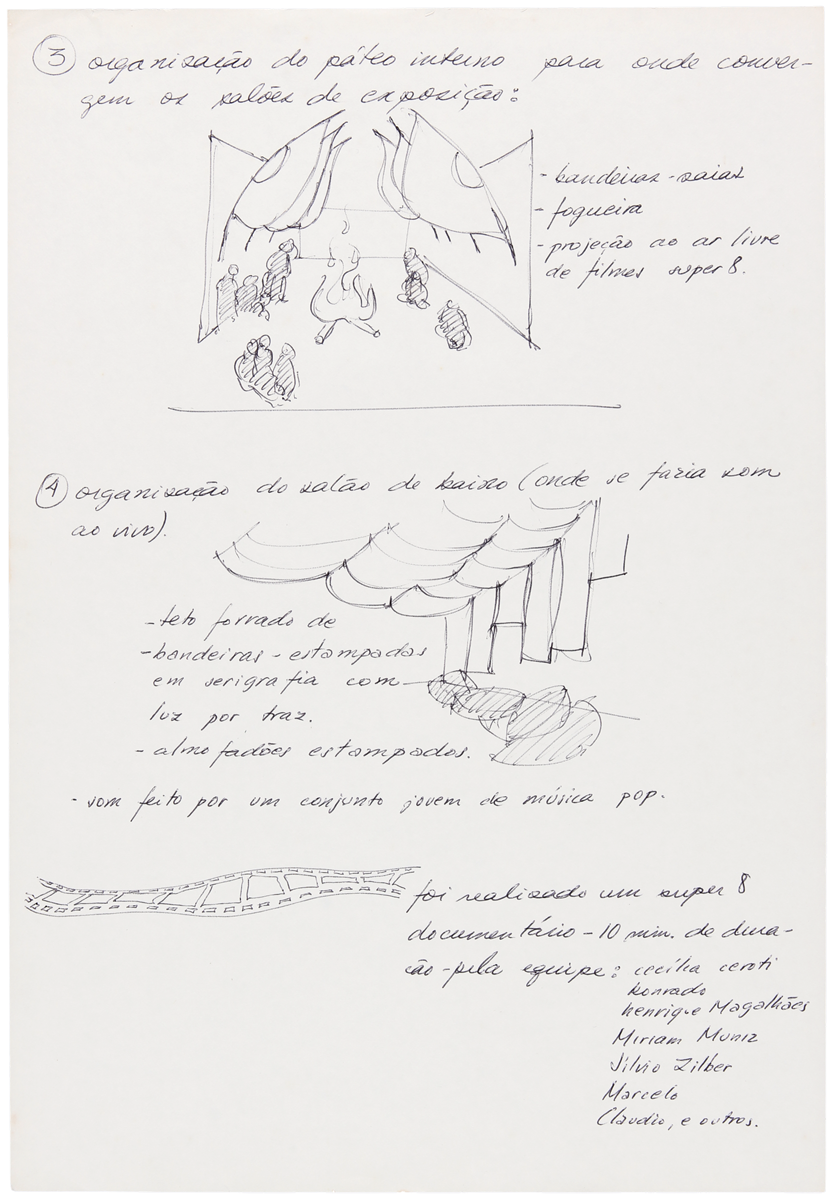 3 organização do páteo interno para onde conver-
gem os salões de exposição:
- bandeiras - saias
- fogueira
- projeção ao ar livre
de filmes super 8.
4 organização do salão de baixo (onde se faria som
ao vivo).
- teto forrado de
- bandeiras - estampadas
em serigrafia com
luz por traz.
- almofadões estampados.
- som feito por um conjunto jovem de música pop.
foi realizado um super 8
documentário - 10 min. de dura-
ção - pela equipe: cecília ceroti
konrado
henrique Magalhães
Miriam Muniz
Silvio Zilber
Marcelo
Claudio, e outros.